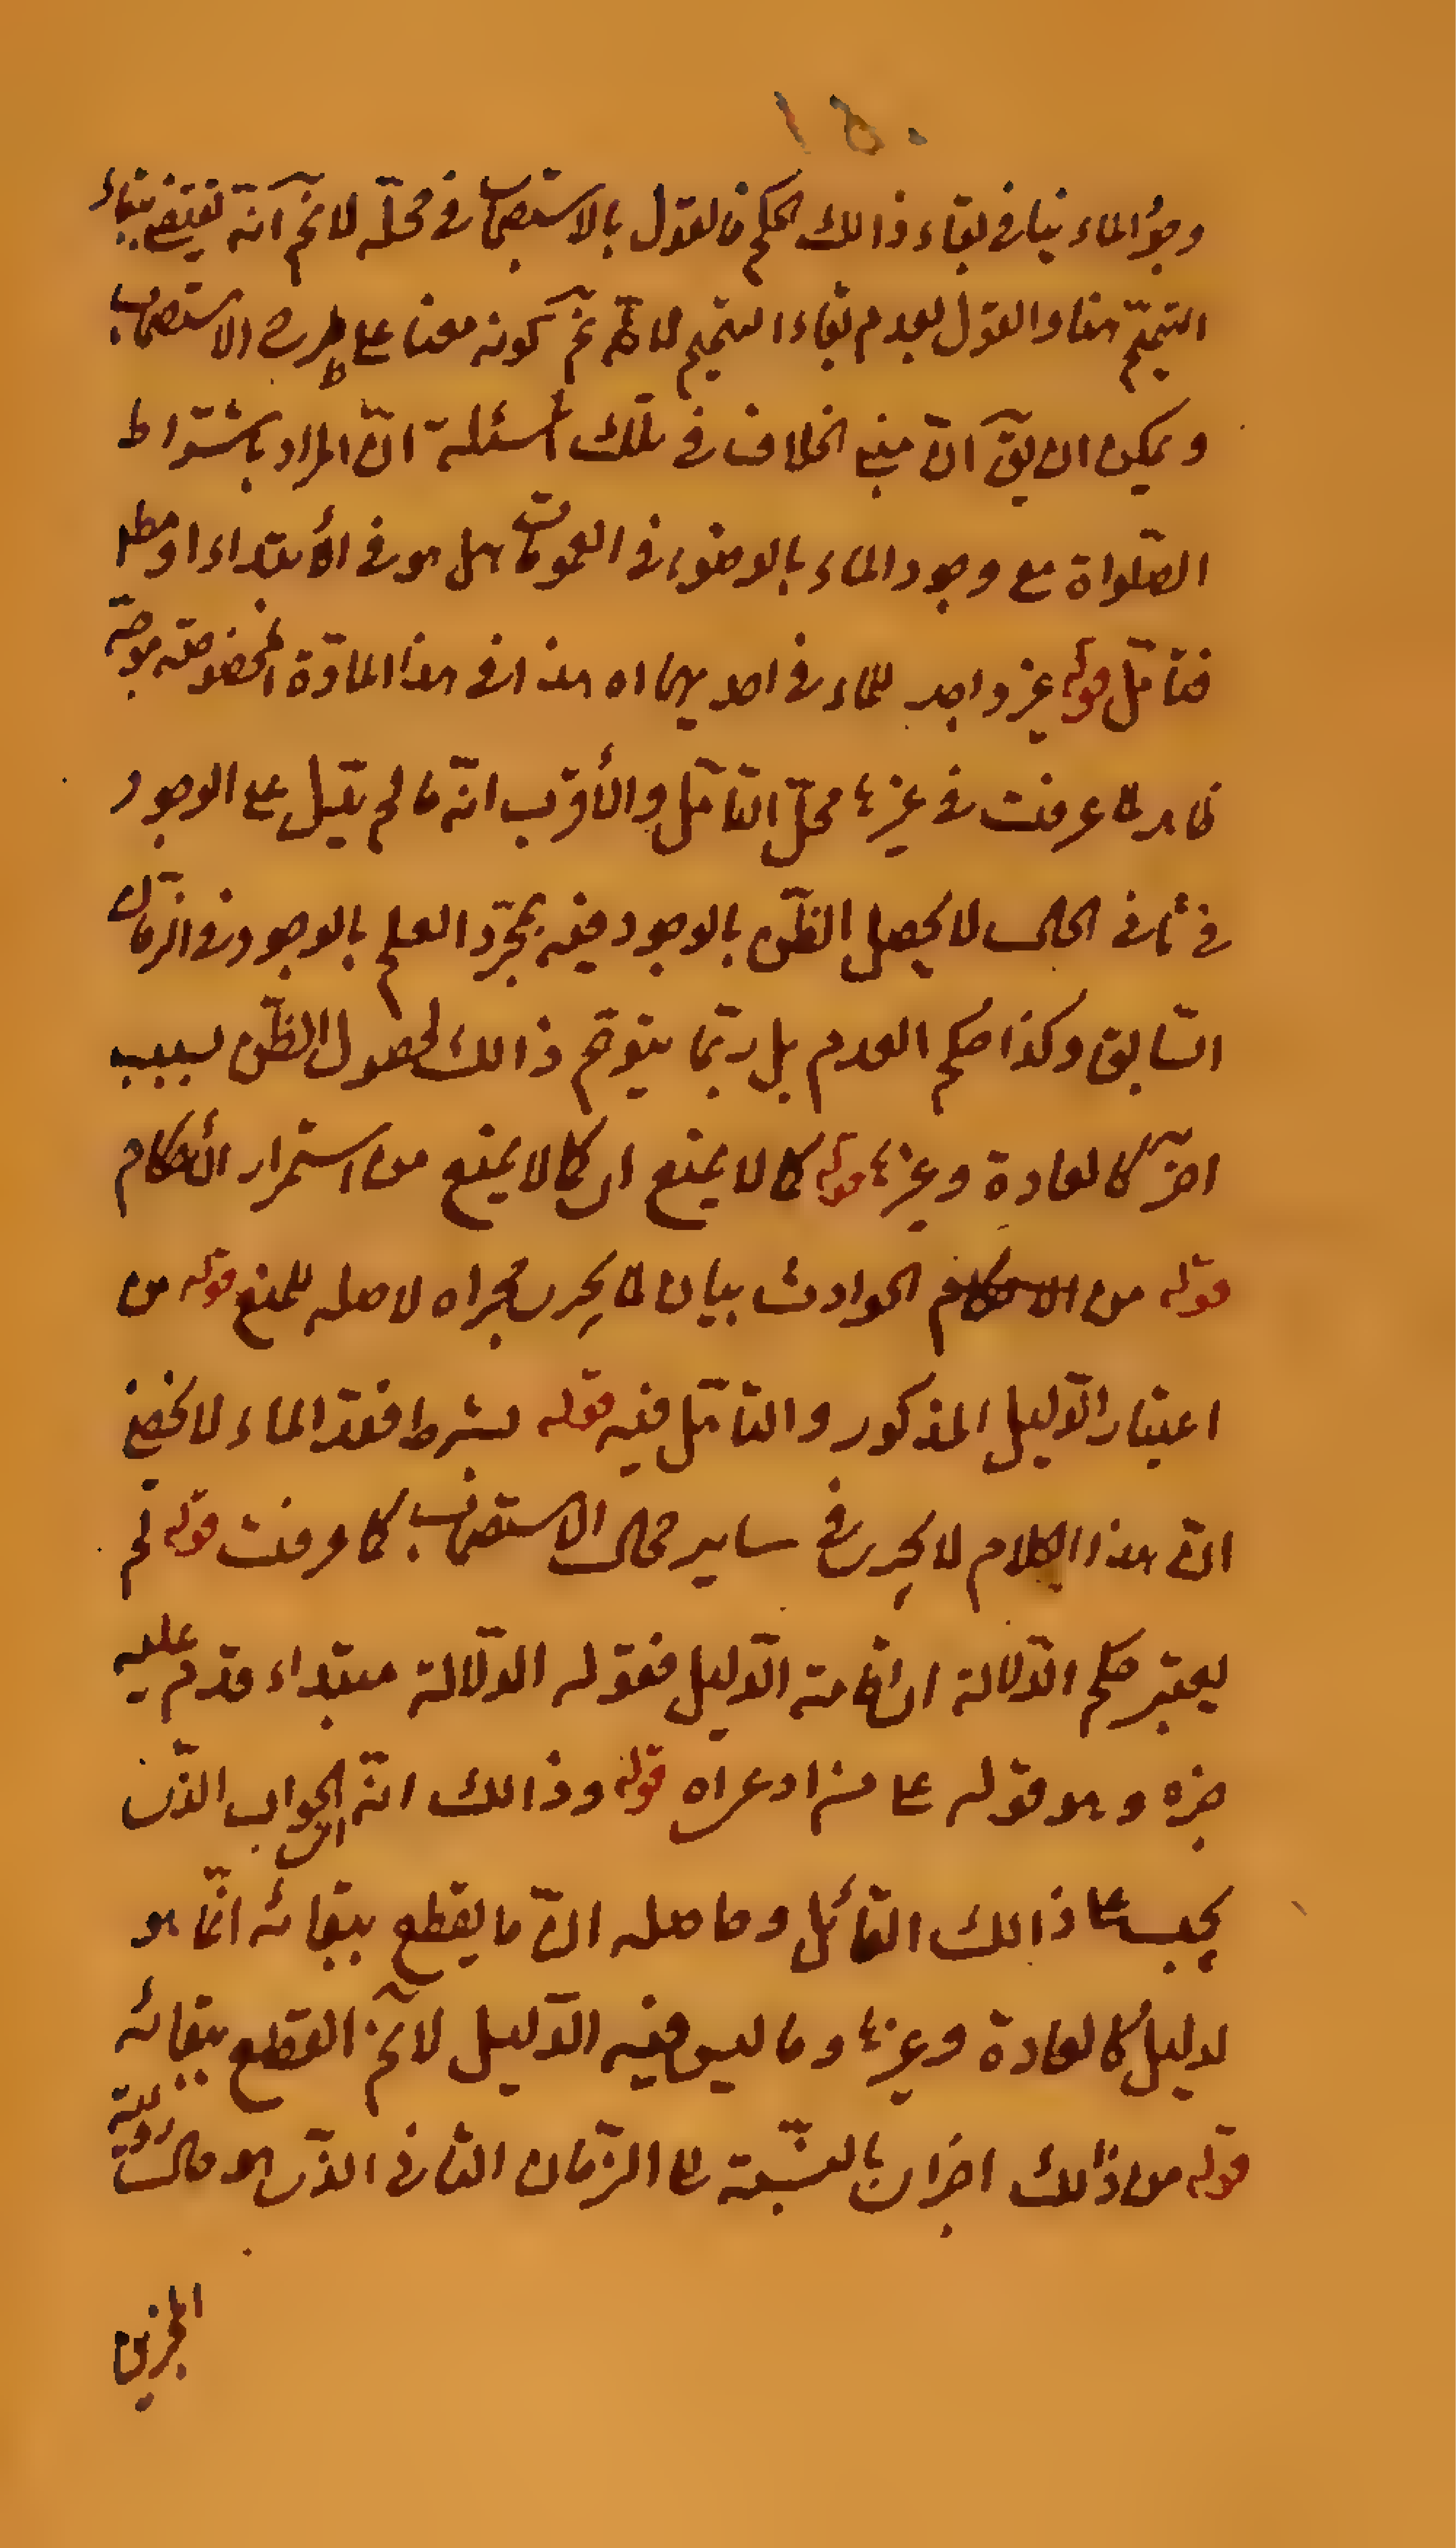 ١٥٠
وجود الماء ينافي بقاء ذالك الحكم فالقول بالاستصحاب في محله لا ثم انه يقتضي بقاء
التيمم هنا والقول بعدم بقاء التيمم كونه معنا على طرح الاستصحاب
ويمكن ان يق ان مبنى الخلاف في تلك المسئلة ان المراد باشتراط
الصلواة مع وجود الماء بالوضوء في العمومات هل هو في الأبتداء او مطلقا
فتامل قوله غير واجد للماء في احديهما اه هذا في هذا المادة المخصوصة موجه
عرفت في غيرها محل التامل والأقرب انه ما لم يدل على الوجود
في ثاني الحال لا يحصل الظن بالوجود فيه بمجرد العلم بالوجود في الزمان
السابق وكذا حكم العدم بل ربما يتوهم ذالك لحصول الظن بسبب
اخر كالعادة وغيرها قوله كما لا يمنع اى كما لا يمنع من استمرار الأحكام
قوله من الحوادث بيان لما يجرى مجراه لا صلة للمنع قوله من
اعتبار الدليل المذكور والتامل فيه قوله بشرط فقد الماء لا يخفى
ان هذا الكلام لا يجرى في ساير محال الاستصحاب كما عرفت قوله ثم
يعتبر حكم الدلالة اى اقامة الدليل فقوله الدلالة مبتداء قدم عليه
خبره وهو قوله على من ادعى اه قوله وذالك انه الجواب الذى
يجب على ذالك القائل وحاصله ان ما يقطع ببقائه انما هو
لدليل كالعادة وغيرها وما ليس فيه الدليل لا ثم القطع ببقائه
قوله من ذالك اخبارى بالنسبة الى الزمان الثاني الذى هو حال
الجزئى